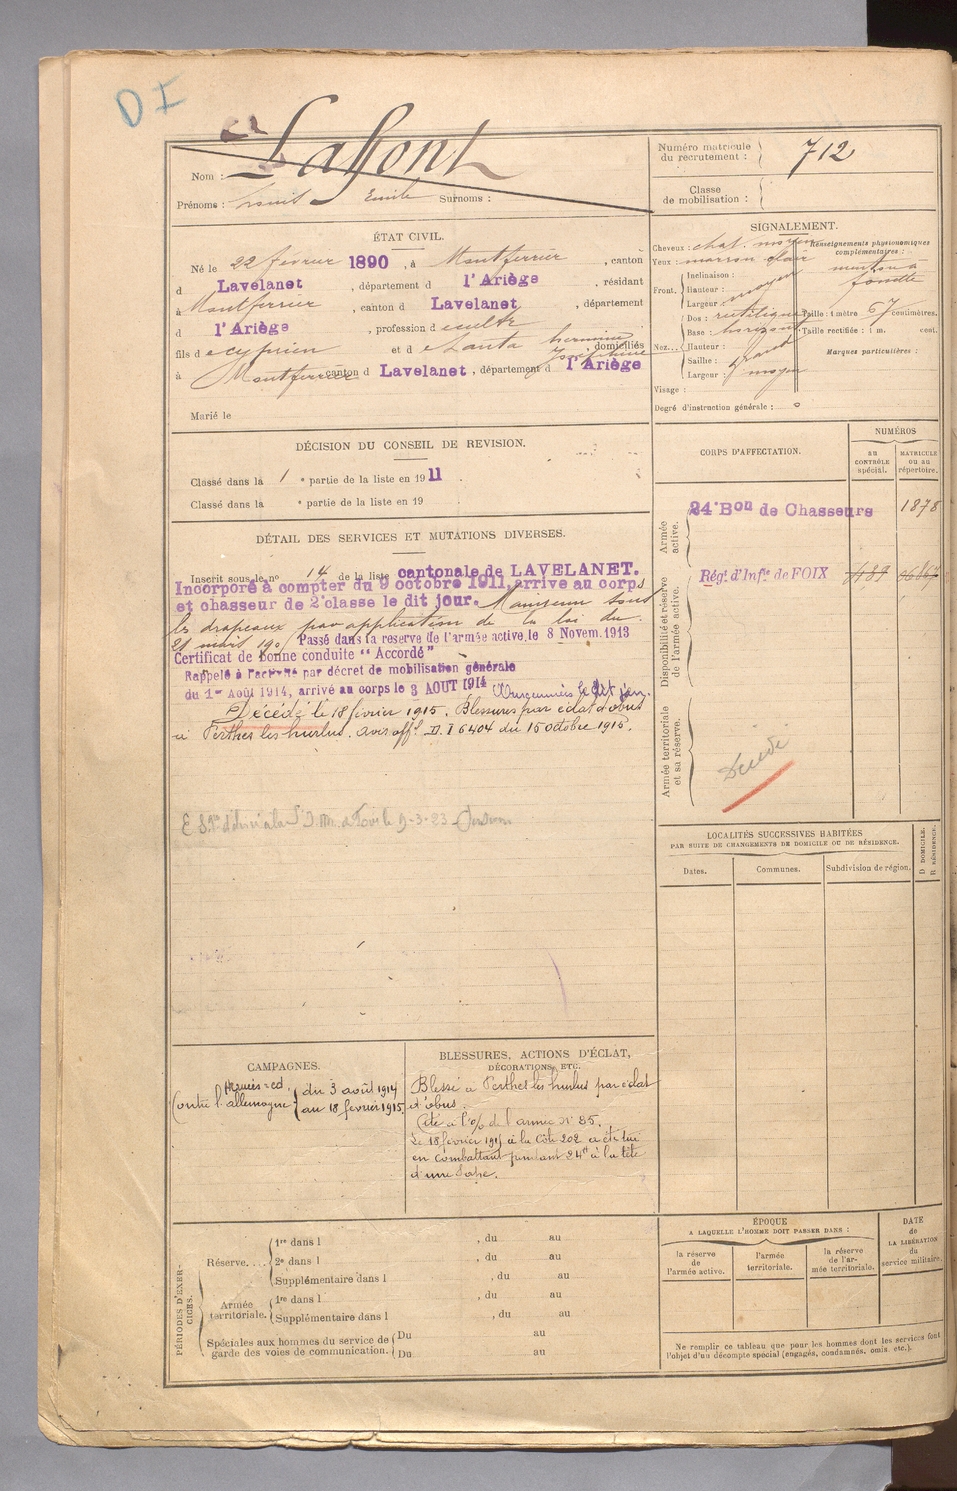 D I
Lafont
Nom :
Prénoms : Louis Emile Surnoms :
Numéro matricule du recrutement : 712
Classe de mobilisation :
ÉTAT CIVIL.
Né le 22 février 1890, à Montferrier, canton
d Lavelanet, département d l'Ariège, résidant
à Montferrier, canton d Lavelanet, département
d l'Ariège, profession de cultr
fils de Cyprien et de Lanta hermine Joséphine domiciliés
à Montferrier canton d Lavelanet, département d l'Ariège
Marié le
SIGNALEMENT.
Cheveux : chat. moyen
Yeux : marron clair
Front. Inclinaison :
Hauteur : moyen
Largeur :
Nez... Dos : rectiligne
Base : horizont
Hauteur :
Saillie : grand
Largeur : moyen
Visage :
Renseignements physionomiques complémentaires :
menton à fossette
Taille : 1 mètre 67 centimètres.
Taille rectifiée : 1 m. cent.
Marques particulières :
Degré d'instruction générale :
DÉCISION DU CONSEIL DE REVISION.
Classé dans la 1 e partie de la liste en 1911.
Classé dans la e partie de la liste en 19
DÉTAIL DES SERVICES ET MUTATIONS DIVERSES.
Inscrit sous le no 14 de la liste cantonale de LAVELANET.
Incorporé à compter du 9 octobre 1911, arrive au corps
et chasseur de 2e classe le dit jour. Maintenu sous
les drapeaux par application de la loi du
21 mars 190 Passé dans la reserve de l'armée active, le 8 Novem. 1913
Certificat de bonne conduite "Accordé"
Rappelé à l'activité par décret de mobilisation générale
du 1er Août 1914, arrivé au corps le 3 AOUT 1914 le dit jour.
Décédé le 18 février 1915. Blessures par éclat d'obus
à Perthes les hurlus. avis offl. D.I 6404 du 15 octobre 1915.
CORPS D'AFFECTATION.
NUMÉROS
au CONTRÔLE spécial.
MATRICULE ou au répertoire.
Armée active.
24e Bon de Chasseurs 1878
Disponibilité et réserve de l'armée active.
Régt d'Infie de FOIX
Armée territoriale et sa réserve.
Décédé
LOCALITÉS SUCCESSIVES HABITÉES
PAR SUITE DE CHANGEMENTS DE DOMICILE OU DE RÉSIDENCE.
Dates.
Communes.
Subdivision de région.
D. DOMICILE.
R. RÉSIDENCE.
CAMPAGNES.
Contre l'allemagne du 3 août 1914
au 18 février 1915.
BLESSURES, ACTIONS D'ÉCLAT,
DÉCORATIONS, ETC.
Blessé à Perthes les hurlus par éclat
d'obus.
Cité à l'o/ de l'armée No 85.
Le 18 février 1915 à la Côte 202 a été tué
en combattant pendant 24h à la tête
d'une Sape.
PÉRIODES D'EXERCICES.
Réserve.... 1re dans l , du au
2e dans l , du au
Supplémentaire dans l , du au
Armée territoriale. 1re dans l , du au
Supplémentaire dans l , du au
Spéciales aux hommes du service de garde des voies de communication. Du au
Du au
ÉPOQUE
A LAQUELLE L'HOMME DOIT PASSER DANS :
la réserve de l'armée active.
l'armée territoriale.
la réserve de l'armée territoriale.
DATE de LA LIBÉRATION du service militaire.
Ne remplir ce tableau que pour les hommes dont les services font
l'objet d'un décompte spécial (engagés, condamnés, omis, etc.).